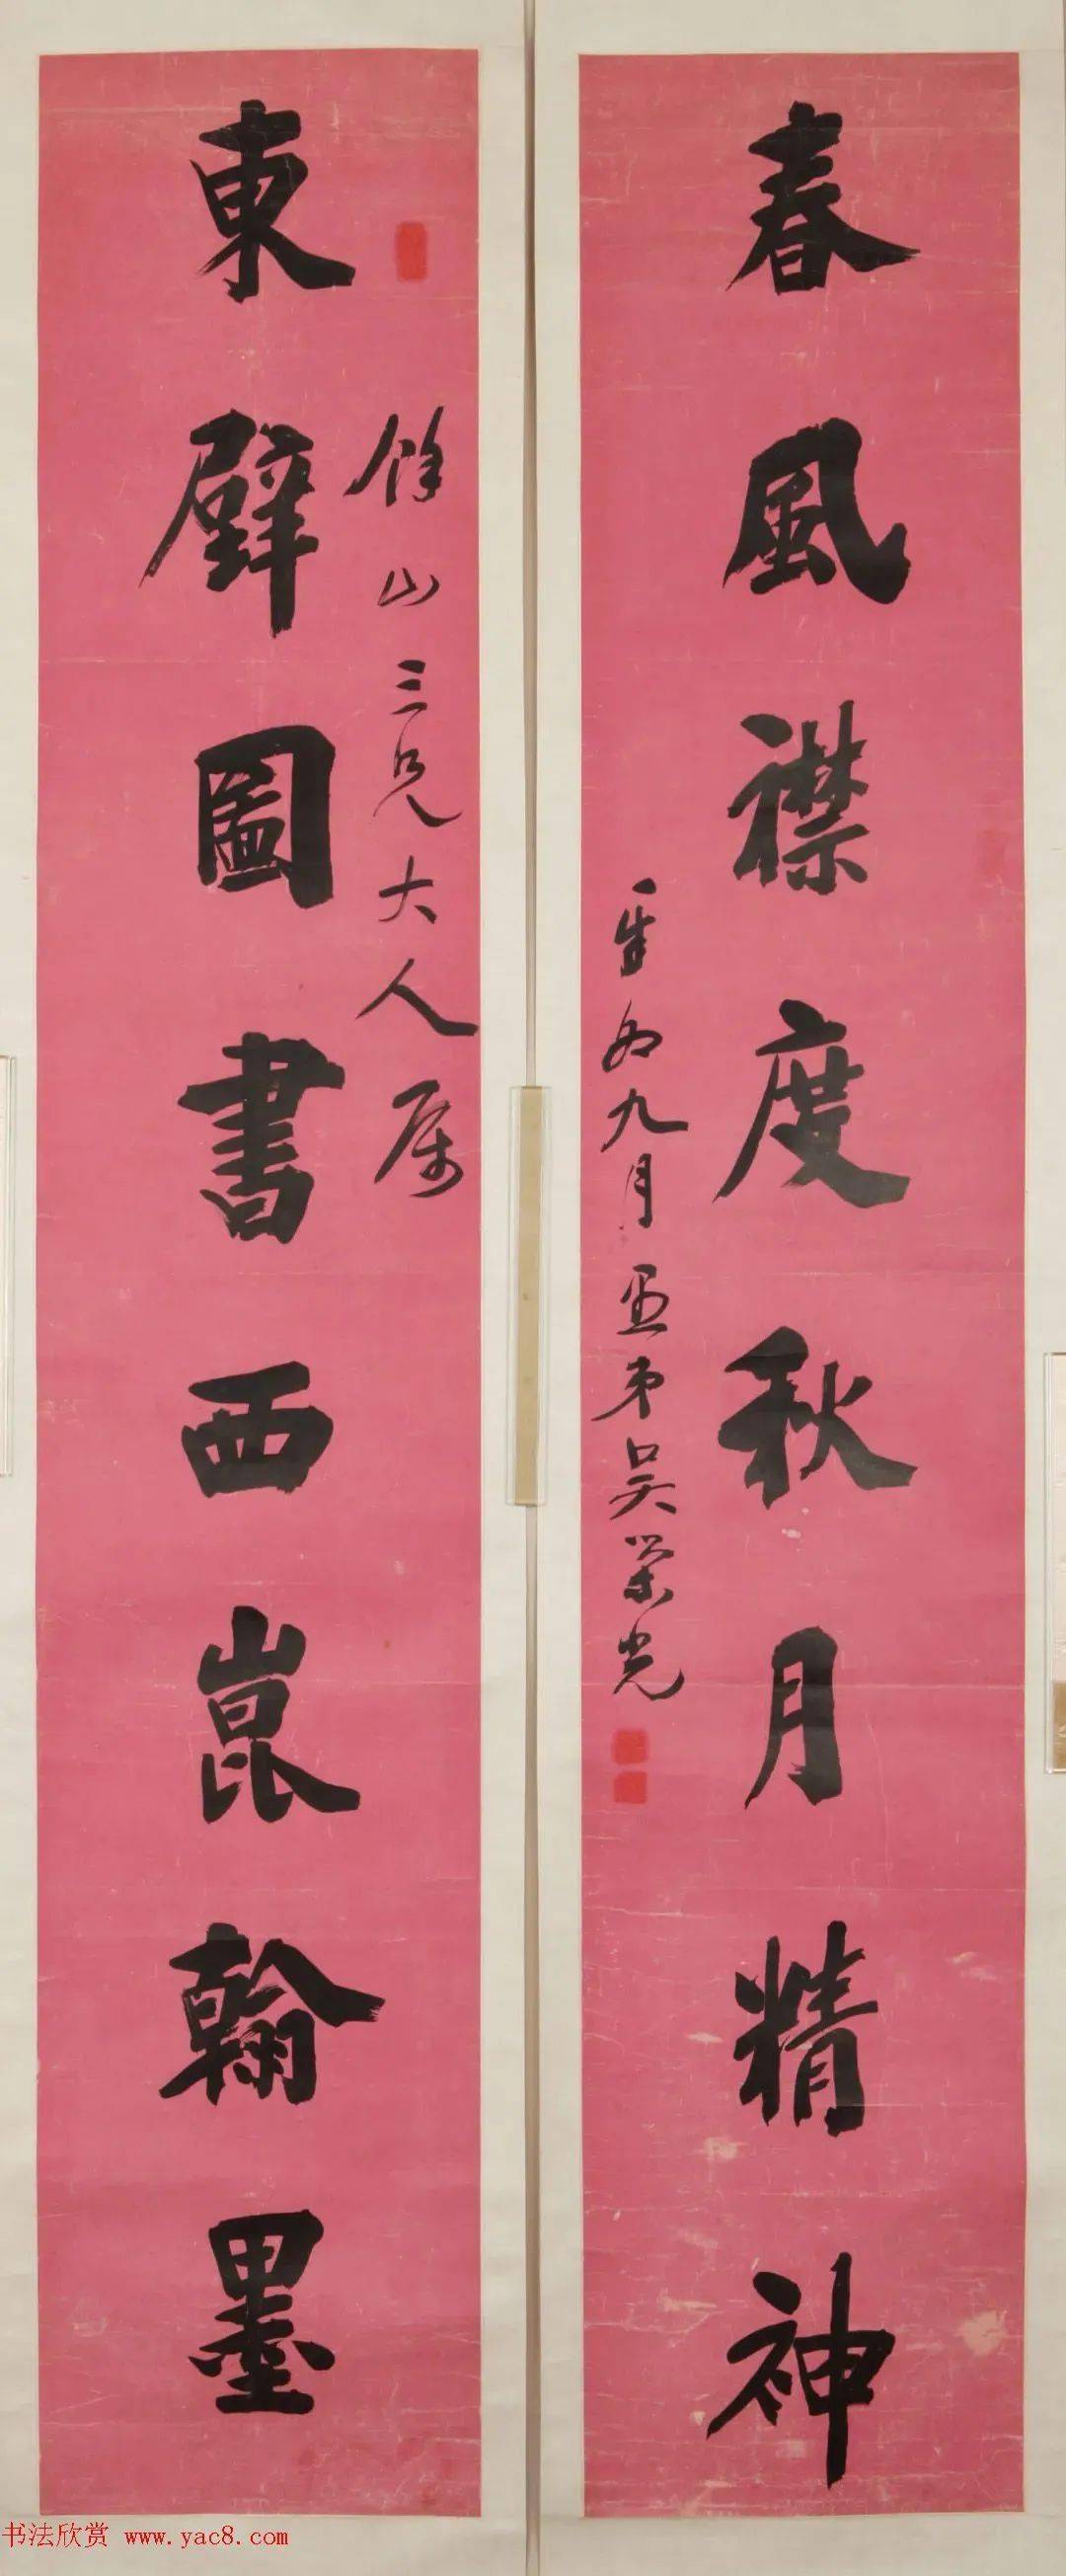 餘山三兄大人屬
東壁圖書西崑翰墨
春風襟度秋月精神
九月愚弟吳榮光
书法欣赏 www.yac8.com